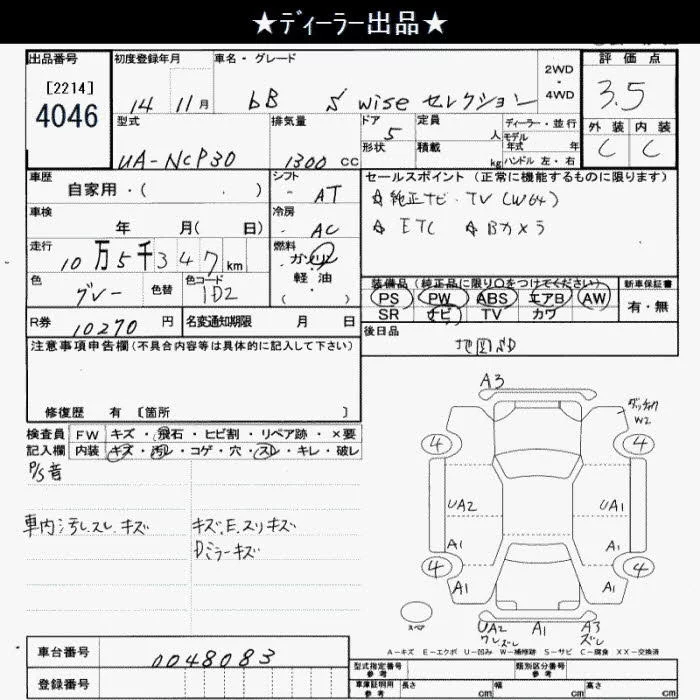 ★ディーラー出品★
出品番号
[2214]
4046
初度登録年月
14 11月
車名・グレード
bB S wise セレクション
2WD
・
4WD
評価点
3.5
外装 内装
C C
型式
UA-NCP30
排気量
1300 CC
ドア
5
形状
定員
人
積載
kg
ディーラー・並行
モデル
年式 年
ハンドル 左・右
車歴
自家用・( )
シフト
AT
車検
年 月( 日)
冷房
AC
走行
10万5千347km
燃料
ガソリン
軽油
( )
色
グレー
色替
色コード
1D2
R券
10270円
名変通知期限 月 日
セールスポイント (正常に機能するものに限ります)
☆純正ナビ・TV (W64)
☆ ETC ☆ Bカメラ
装備品 (純正品に限り○をつけてください)
PS PW ABS エアB AW
SR ナビ TV カワ
新車保証書
有・無
後日品
地図SD
注意事項申告欄(不具合内容等は具体的に記入して下さい)
修復歴 有 〔箇所 〕
検査員
記入欄
FW キズ・飛石・ヒビ割・リペア跡・×要
内装 キズ・汚レ・コゲ・穴・スレ・キレ・破レ
P/S音
車内汚レ.スレ.キズ
キズ.E.スリキズ
Dミラーキズ
A3
W2
4 4
UA2 UA1
A1 A1
4 4
A1 A1
スペア
UA2 A1 A3
ズレ
A-キズ E-エクボ U-凹み W-補修跡 S-サビ C-腐食 XX-交換済
車台番号
0048083
登録番号
型式指定番号
参考
類別区分番号
参考
車庫証明用
参考
長さ cm
幅 cm
高さ cm